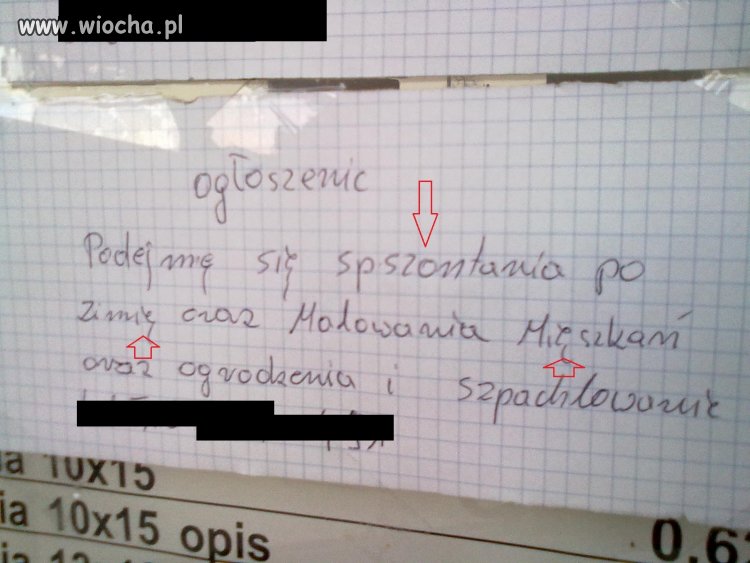 www.wiocha.pl
ogłoszenie
Podejmę się spszontania po
zimię oraz Malowania Mięszkań
oraz ogrodzenia i szpachlowanie
ia 10x15
ia 10x15 opis
0.6